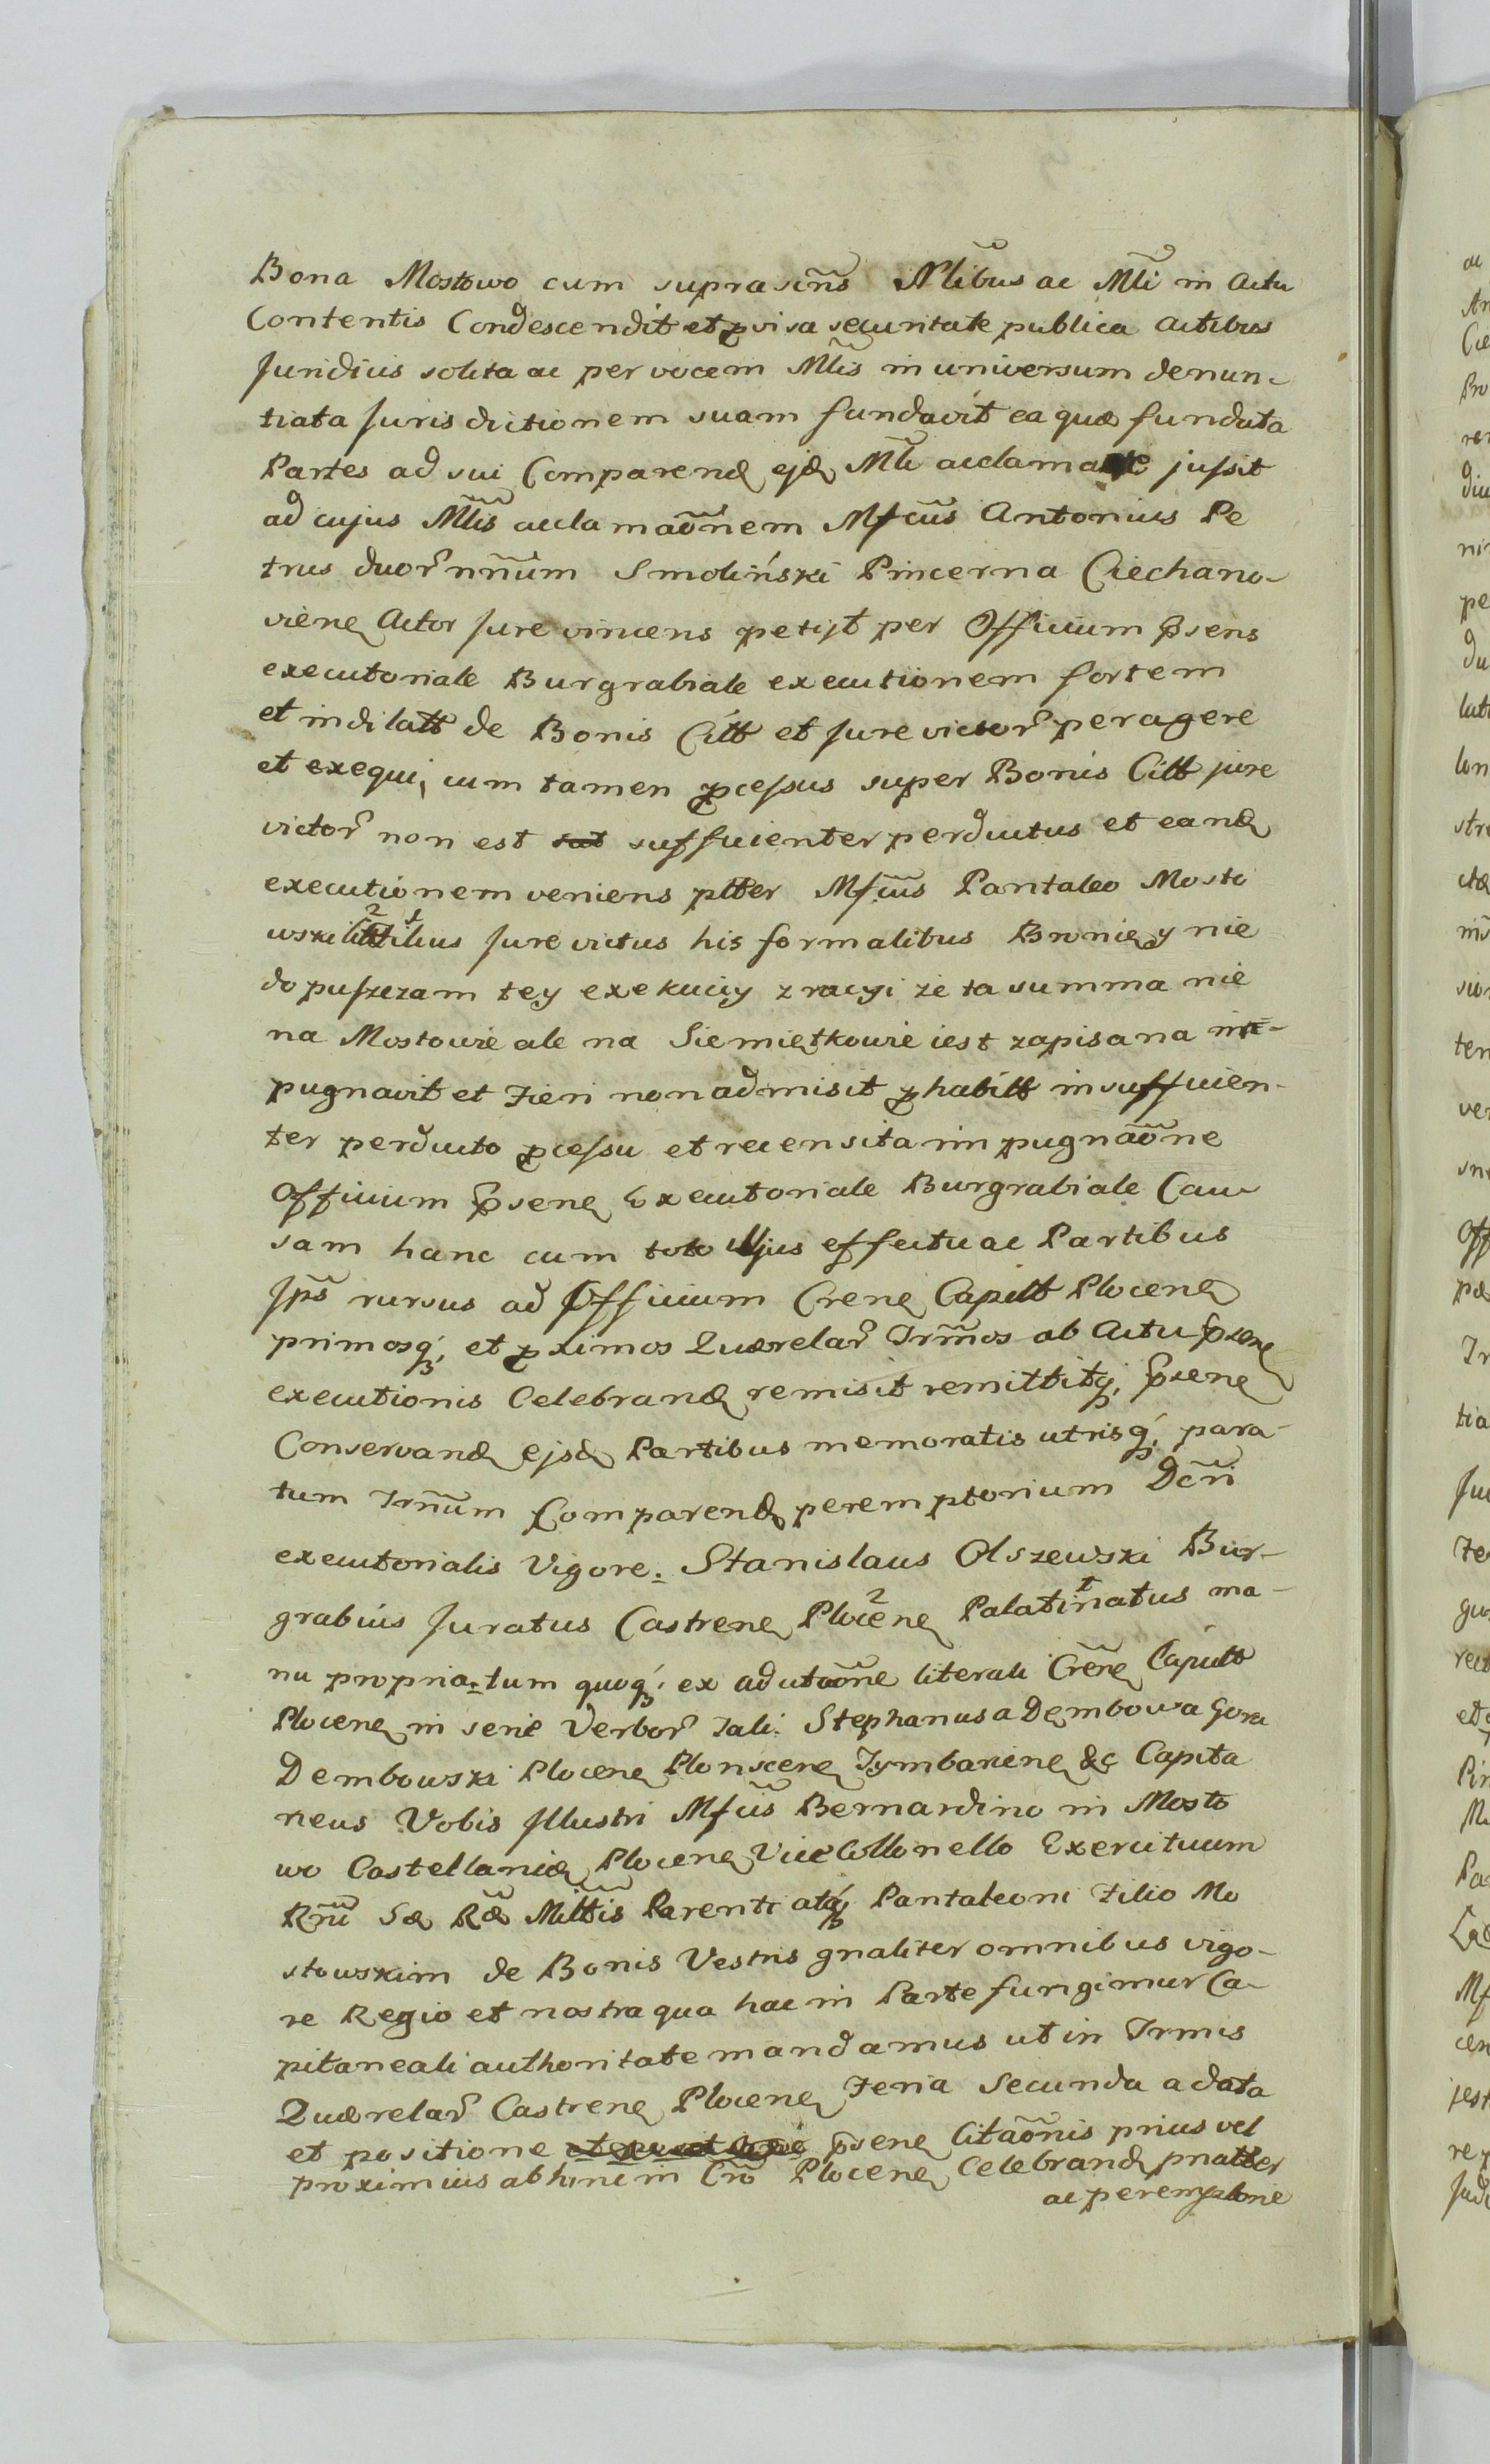 Bona Mostowo cum suprascñs Nlibus ac Mlĩ in actu
Contentis Condescendit et pvisa securitate publica actibus
Juridicis solita ac per vocem Mlĩs in universum denun-
tiata Jurisdictionem suam fundavit ea quæ fundata
Partes ad sui Comparend ejd Mlĩ acclamare jussit
ad cujus Mlĩs acclamaõnem Mfcus Antonius Pe
trus duor nnũm Smoliński Pincerna Ciechano-
viene Actor Jure vincens petijt per Officium psens
executoriale Burgrabiale executionem fortem
et indilatt de Bonis Citt et Jure victor peragere
et exequi, cum tamen pcessus super Bonis Citt jure
victor non est sat sufficienter perductus et eand
executionem veniens ptter Mfcus Pantaleo Mosto
wski Jure victus his formalibus Bronię y nie
dopuszczam tey exekucyi z racyi że ta summa nie
na Mostowie ale na Siemiętkowie iest zapisana im-
pugnavit et Fieri non admisit phabitt insufficien-
ter perducto pcessu et recensita impugnaõne
Officium psene Executoriale Burgrabiale Cau-
sam hanc cum toto illjus effectu ac Partibus
Jps rursus ad Officium Crene Capitt Plocene
primosq; et pximos Quærelar Trmos ab Actu psene
executionis Celebrand remisit remittitq; psene
Conservand ejsd Partibus memoratis utrisq; para-
tum Trmum Comparend peremptorium Dcri
executorialis Vigore. Stanislaus Olszewski Bur-
grabius Juratus Castrene Plocene Palatinatus ma-
nu propria. tum quoq; ex ad citaõne literali Crene Capitt
Plocene in serie Verbor Tali. Stephanus a Dembowa Gora
Dembowski Plocene Plonscene Tymbarcene &c Capita
neus Vobis Illustri Mfcis Bernardino in Mosto
wo Castellanid Plocene ViceCollonello Exercituum
Rnu Sæ Ræ Mttis Parenti atq; Pantaleoni Filio Mo
stowskim de Bonis Vestris gnaliter omnibus vigo-
re Regio et nostra qua hac in Parte fungimur Ca-
pitaneali authoritate mandamus ut in Trmis
Quærelar Castrene Plocene Feria Secunda a data
et positione psene Citaõnis prius vel
proximius ab hinc in Cro Plocene Celebrand pnatter
ac peremptorie